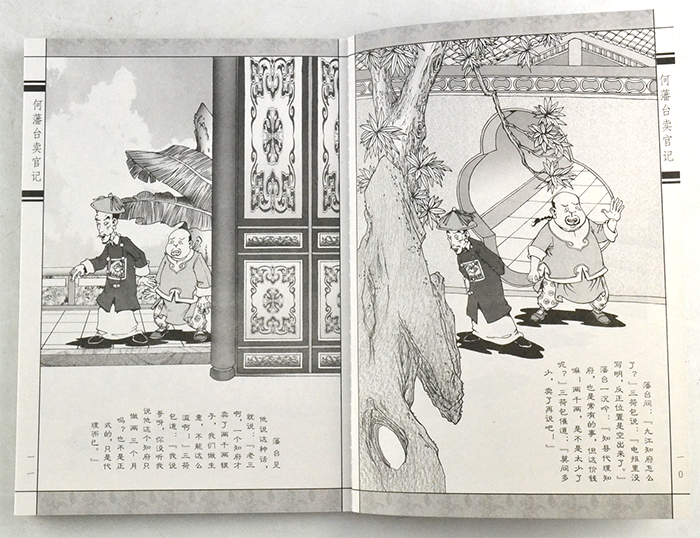 何藩台卖官记
藩台问:“九江知府怎么
了?”三荷包说:“电报里没
写明,反正位置是空出来了。”
藩台一沉吟:“知县代理知
府,也是常有的事,但这价钱
嘛——两千两,是不是太少了
呢?”三荷包催道:“莫问多
少,卖了再说吧!”
一〇
藩台见
他说这种话,
就说:“老三
啊,一个知府才
卖了两千两银
子,我们做生
意,不能这么
滥啊!”三荷
包道:“我说
哥呀,你没听我
说他这个知府只
做两三个月
吗?也不是正
式的,只是代
理而已。”
何藩台卖官记
一一